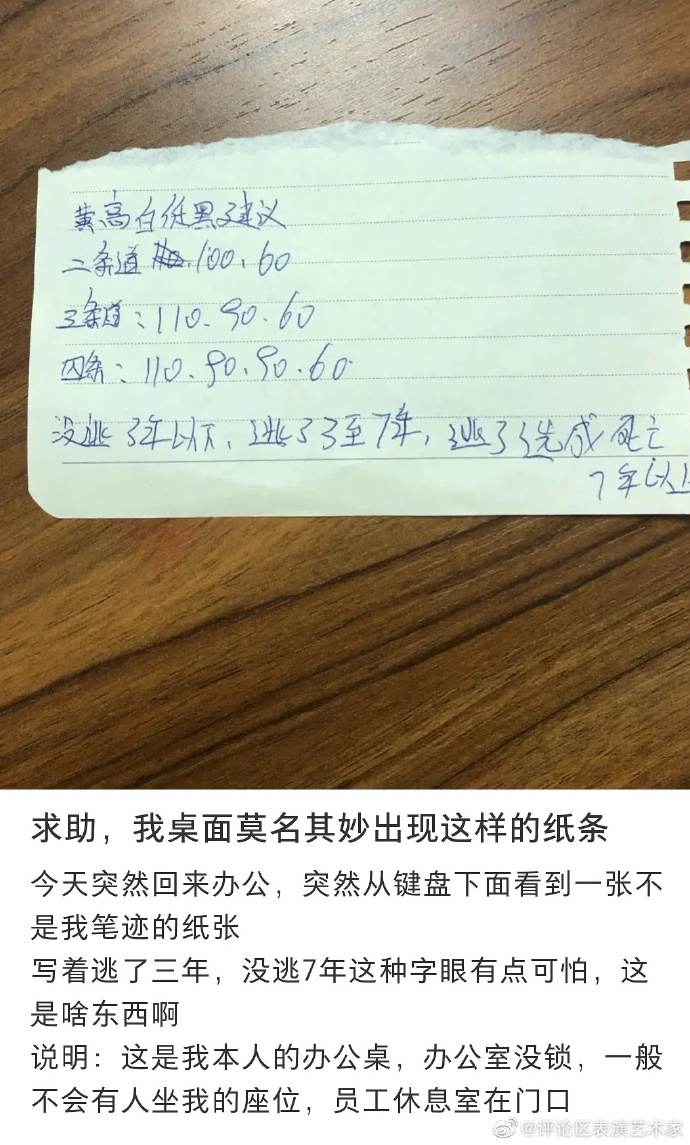 黄高白低黑建议
二条道 100、60
三条道：110、90、60
四条：110、90、90、60
没逃3年以下、逃了3至7年，逃了造成死亡
7年以上
求助，我桌面莫名其妙出现这样的纸条
今天突然回来办公，突然从键盘下面看到一张不
是我笔迹的纸张
写着逃了三年，没逃7年这种字眼有点可怕，这
是啥东西啊
说明：这是我本人的办公桌，办公室没锁，一般
不会有人坐我的座位，员工休息室在门口
@评论区表演艺术家